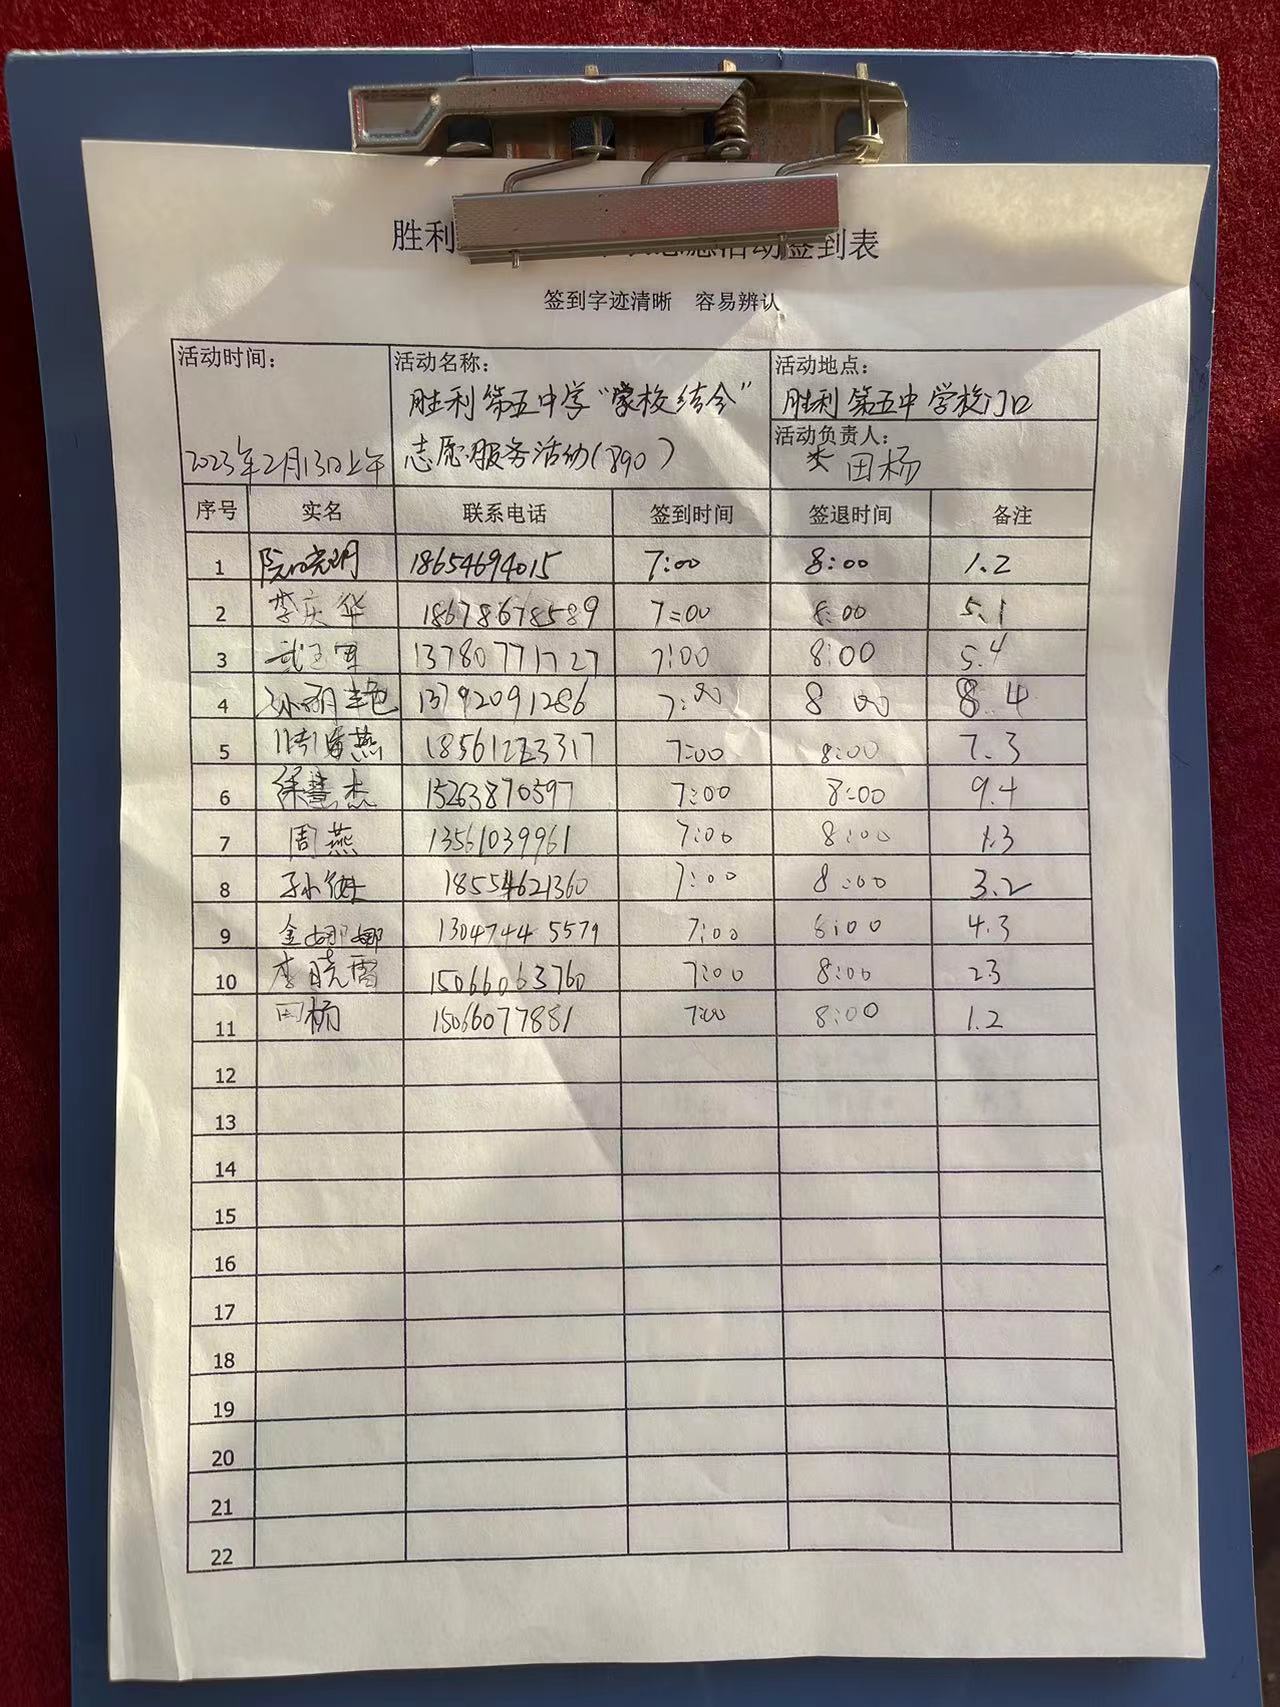 胜利 志愿活动签到表
签到字迹清晰 容易辨认
活动时间: 活动名称: 活动地点:
胜利第五中学“家校结合” 胜利第五中学校门口
活动负责人:
2023年2月13日上午 志愿服务活动(890) 田杨
序号 实名 联系电话 签到时间 签退时间 备注
1 18654694015 7:00 8:00 1.2
2 李庆华 18678678589 7:00 8:00 5.1
3 武玉军 13780771727 7:00 8:00 5.4
4 孙丽艳 13792091286 7:00 8:00 8.4
5 燕 18561223317 7:00 8:00 7.3
6 徐慧杰 15263870597 7:00 8:00 9.4
7 周燕 13561039961 7:00 8:00 1.3
8 孙健 18554621360 7:00 8:00 3.2
9 金娜娜 13047445579 7:00 8:00 4.3
10 李晓雷 15066063760 7:00 8:00 23
11 田杨 15066077881 7:00 8:00 1.2
12
13
14
15
16
17
18
19
20
21
22